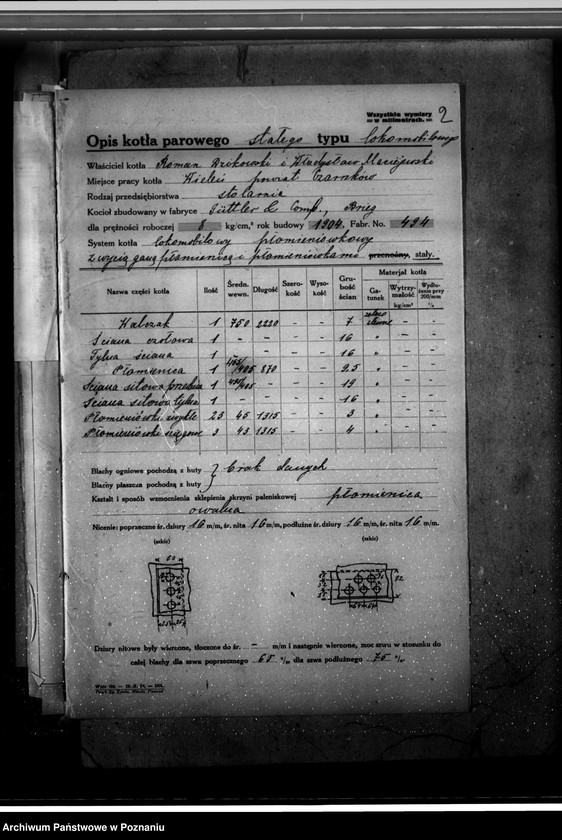 Wszystkie wymiary
w milimetrach.
2
Opis kotła parowego stałego typu lokomobilowego
Właściciel kotła Roman Dzikowski i Władysław Maciejewski
Miejsce pracy kotła Wieleń powiat Czarnków
Rodzaj przedsiębiorstwa stolarnia
Kocioł zbudowany w fabryce Güttler & Comp., Brieg
dla prężności roboczej 8 kg/cm,² rok budowy 1904. Fabr. No. 494
System kotła lokomobilowy płomieniówkowy
z wyciąganą płomienicą i płomieniówkami przenośny, stały.
Nazwa części kotła Ilość Średn. wewn. Długość Szerokość Wysokość Grubość ścian Materjał kotła Gatunek Wytrzymałość kg/cm² Wydłużenie przy 200/mm %
Walczak 1 750 2220 - - 7 żelazo zlewne - -
Ściana czołowa 1 - - - - 16 " - -
Tylna ściana 1 - - - - 16 " - -
Płomienica 1 870 - - 9.5 " - -
Ściana sitowa przednia 1 - - - 19 " - -
Ściana sitowa tylna 1 - - - - 16 " - -
Płomieniówki zwykłe 23 45 1315 - - 3 " - -
Płomieniówki ściągowe 3 43 1315 - - 4 " - -
Blachy ogniowe pochodzą z huty } brak danych
Blachy płaszcza pochodzą z huty }
Kształt i sposób wzmocnienia sklepienia skrzyni paleniskowej płomienica
owalna
Nicenie: poprzeczne śr. dziury 16 m/m, śr. nita 16 m/m, podłużne śr. dziury 16 m/m, śr. nita 16 m/m.
(szkic) (szkic)
Dziury nitowe były wiercone, tłoczone do śr. - m/m i następnie wiercone, moc szwu w stosunku do
całej blachy dla szwa poprzecznego 65 % dla szwa podłużnego 75 %
Archiwum Państwowe w Poznaniu